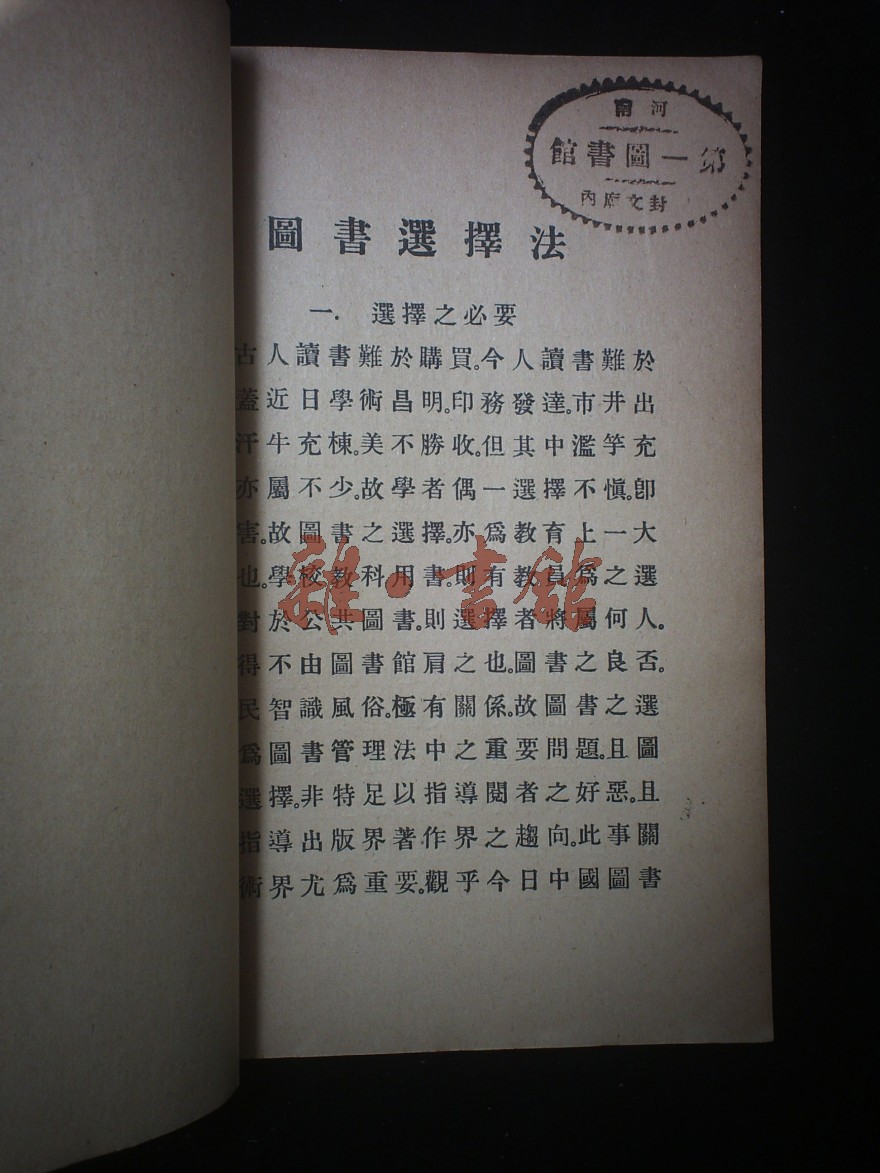 河南
第一圖書館
封文府內
圖書選擇法
一. 選擇之必要
古人讀書難於購買。今人讀書難於
蓋近日學術昌明。印務發達。市井出
汗牛充棟。美不勝收。但其中濫竽充
亦屬不少。故學者偶一選擇不愼。卽
害。故圖書之選擇。亦爲教育上一大
也。學校教科用書。則有教員爲之選
對於公共圖書。則選擇者將屬何人。
得不由圖書館肩之也。圖書之良否。
民智識風俗。極有關係。故圖書之選
爲圖書管理法中之重要問題。且圖
選擇。非特足以指導閱者之好惡。且
指導出版界著作界之趨向。此事關
術界尤爲重要。觀乎今日中國圖書
雜·書館